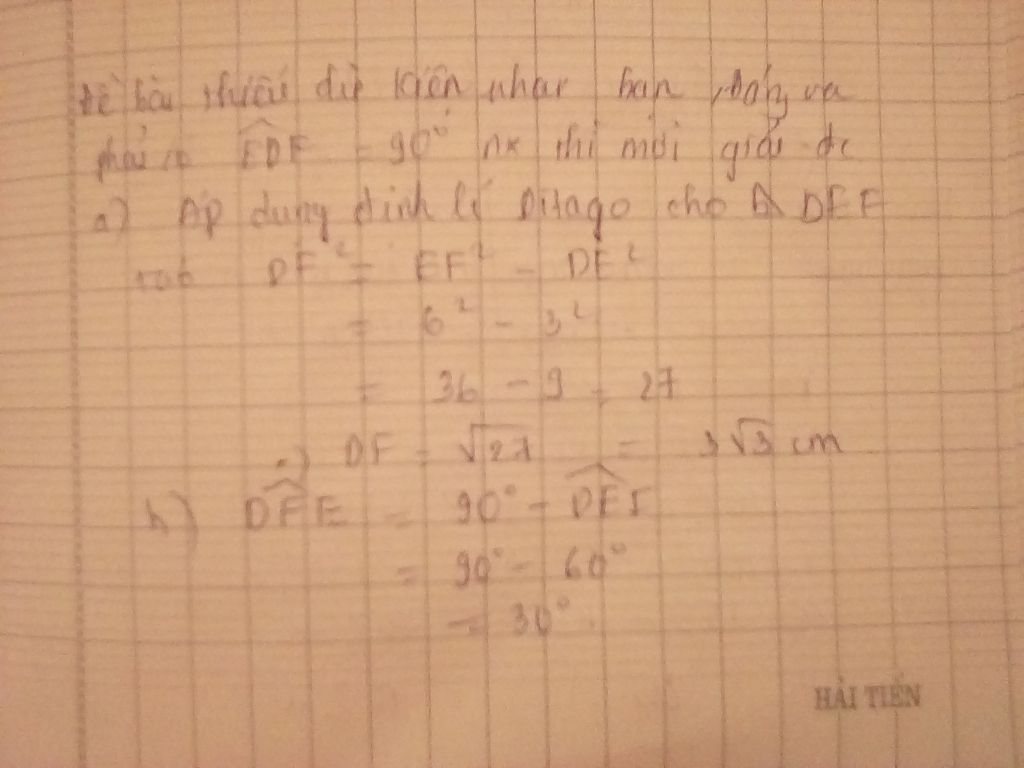 Đề bài thiếu dữ kiện nha bạn
phải có EDF = 90° nx thì mới giải đc
a) Áp dụng định lí Pitago cho Δ DEF
DF² = EF² - DE²
= 6² - 3²
= 36 - 9 = 27
=) DF = √27 = 3√3 cm
b) DFE = 90° - DEF
= 90° - 60°
= 30°
HẢI TIẾN